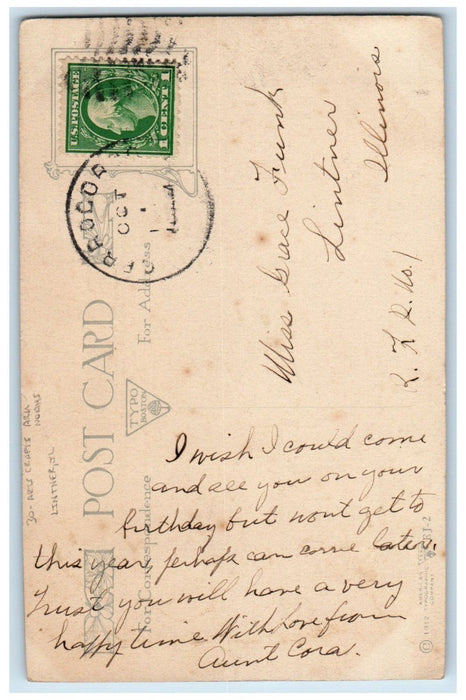 U.S. POSTAGE
1 CENT 1
CERRO GOR
OCT
1
POST CARD
For Correspondence
For Address
TYPO
BOSTON
Miss Grace Funk
Lintner
Illinois
R. F. D. No. 1
I wish I could come
and see you on your
birthday but wont get to
this year, perhaps can come later.
Trust you will have a very
happy time. With love from
Aunt Cora.
30- ARTS CRAFTS
LINTNER, IL
© 1912
COMPANY